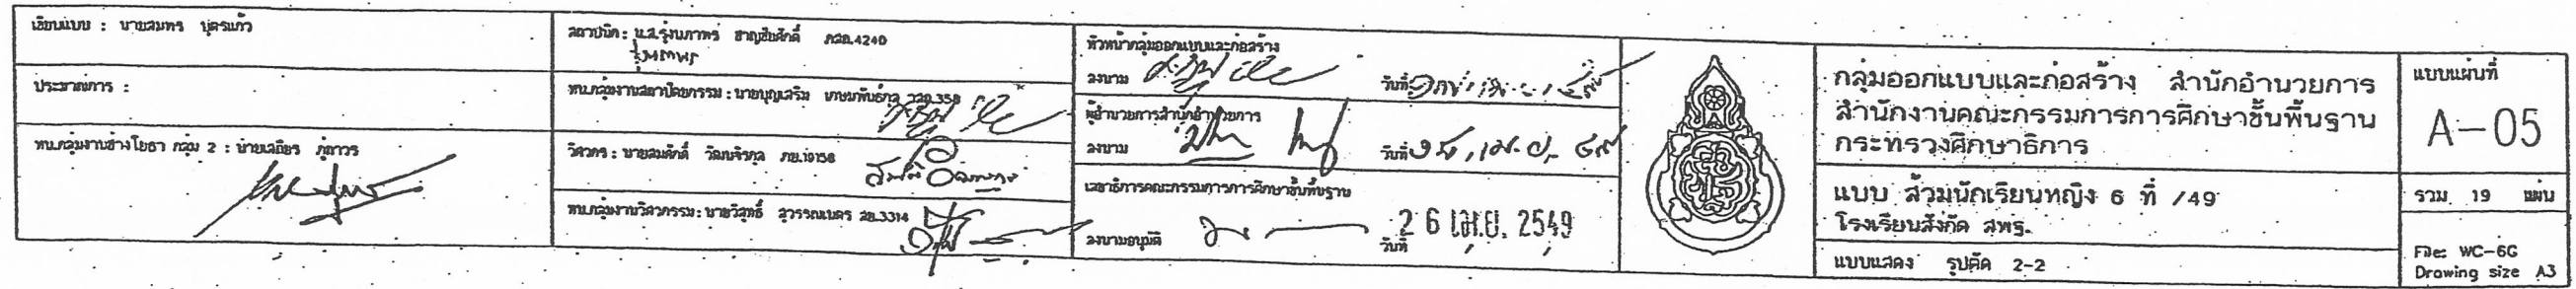 เขียนแบบ : นายสมทร บุตรแก้ว
ประมาณการ :
หน.กลุ่มงานช่างโยธา กลุ่ม 2 : นายเสถียร ภู่ถาวร
สถาปนิก : น.ส.รุ่งนภาพร ชาญชัยศักดิ์ ภสถ.4240
รุ่งนภาพร
หน.กลุ่มงานสถาปัตยกรรม : นายบุญเสริม เกษมพันธ์กุล วสถ.358
วิศวกร : นายสมศักดิ์ วัฒนจิรกุล ภย.19158
หน.กลุ่มงานวิศวกรรม : นายวิสุทธิ์ สุวรรณเนตร สย.3314
หัวหน้ากลุ่มออกแบบและก่อสร้าง
ลงนาม วันที่
ผู้อำนวยการสำนักอำนวยการ
ลงนาม วันที่
เลขาธิการคณะกรรมการการศึกษาขั้นพื้นฐาน
ลงนามอนุมัติ วันที่ 26 เม.ย. 2549
กลุ่มออกแบบและก่อสร้าง สำนักอำนวยการ
สำนักงานคณะกรรมการการศึกษาขั้นพื้นฐาน
กระทรวงศึกษาธิการ
แบบ ส้วมนักเรียนหญิง 6 ที่ /49
โรงเรียนสังกัด สพฐ.
แบบแสดง รูปตัด 2-2
แบบแผ่นที่
A-05
รวม 19 แผ่น
File: WC-6G
Drawing size A3